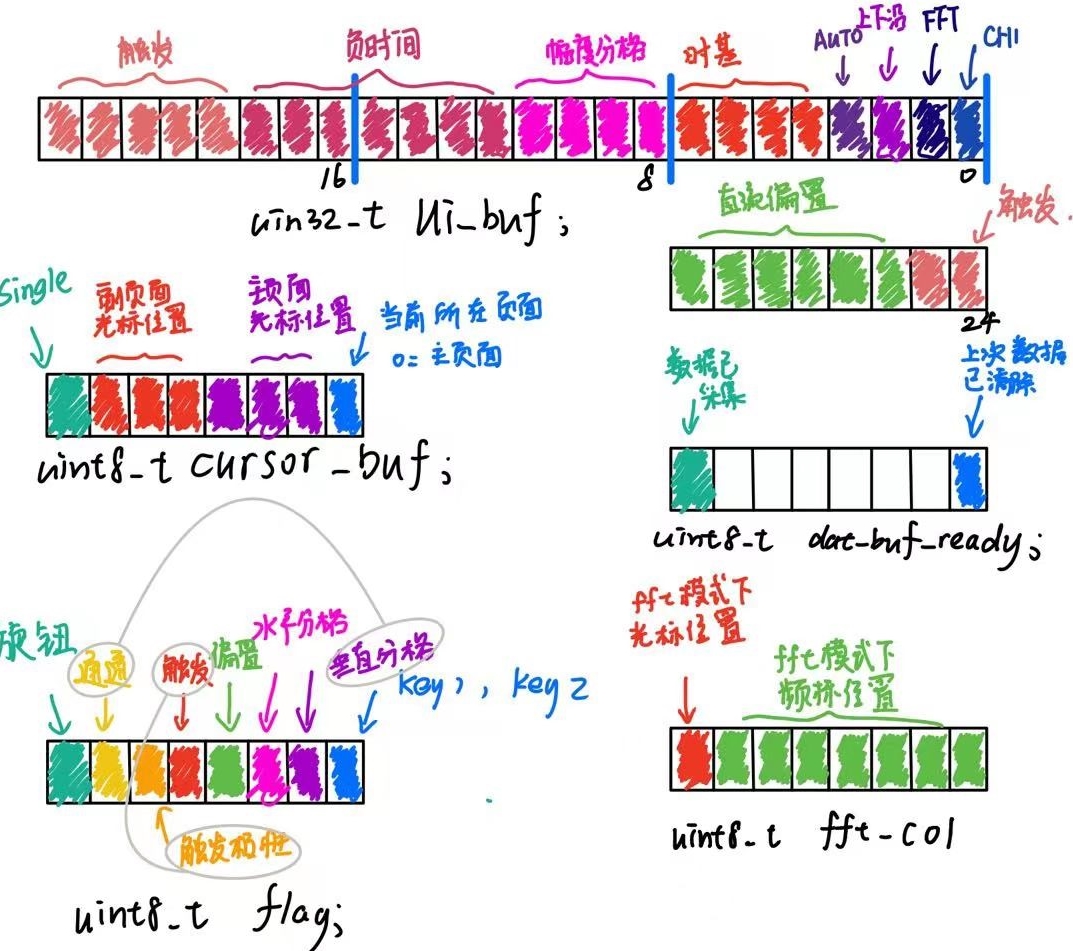 触发
负时间
幅度分格
时基
AUTO
上下沿
FFT
CH1
16
8
0
uin32_t Ui_buf;
直流偏置
触发.
24
Single
副页面
光标位置
主页面
光标位置
当前所在页面
0=主页面
uint8_t cursor_buf;
数据已
采集
上次数据
已清除
uint8_t dat_buf_ready;
旋钮
通道
触发
偏置
水平分格
垂直分格
key1, key2
触发极性
uint8_t flag;
fft模式下
光标位置
fft模式下
频标位置
uint8_t fft_col